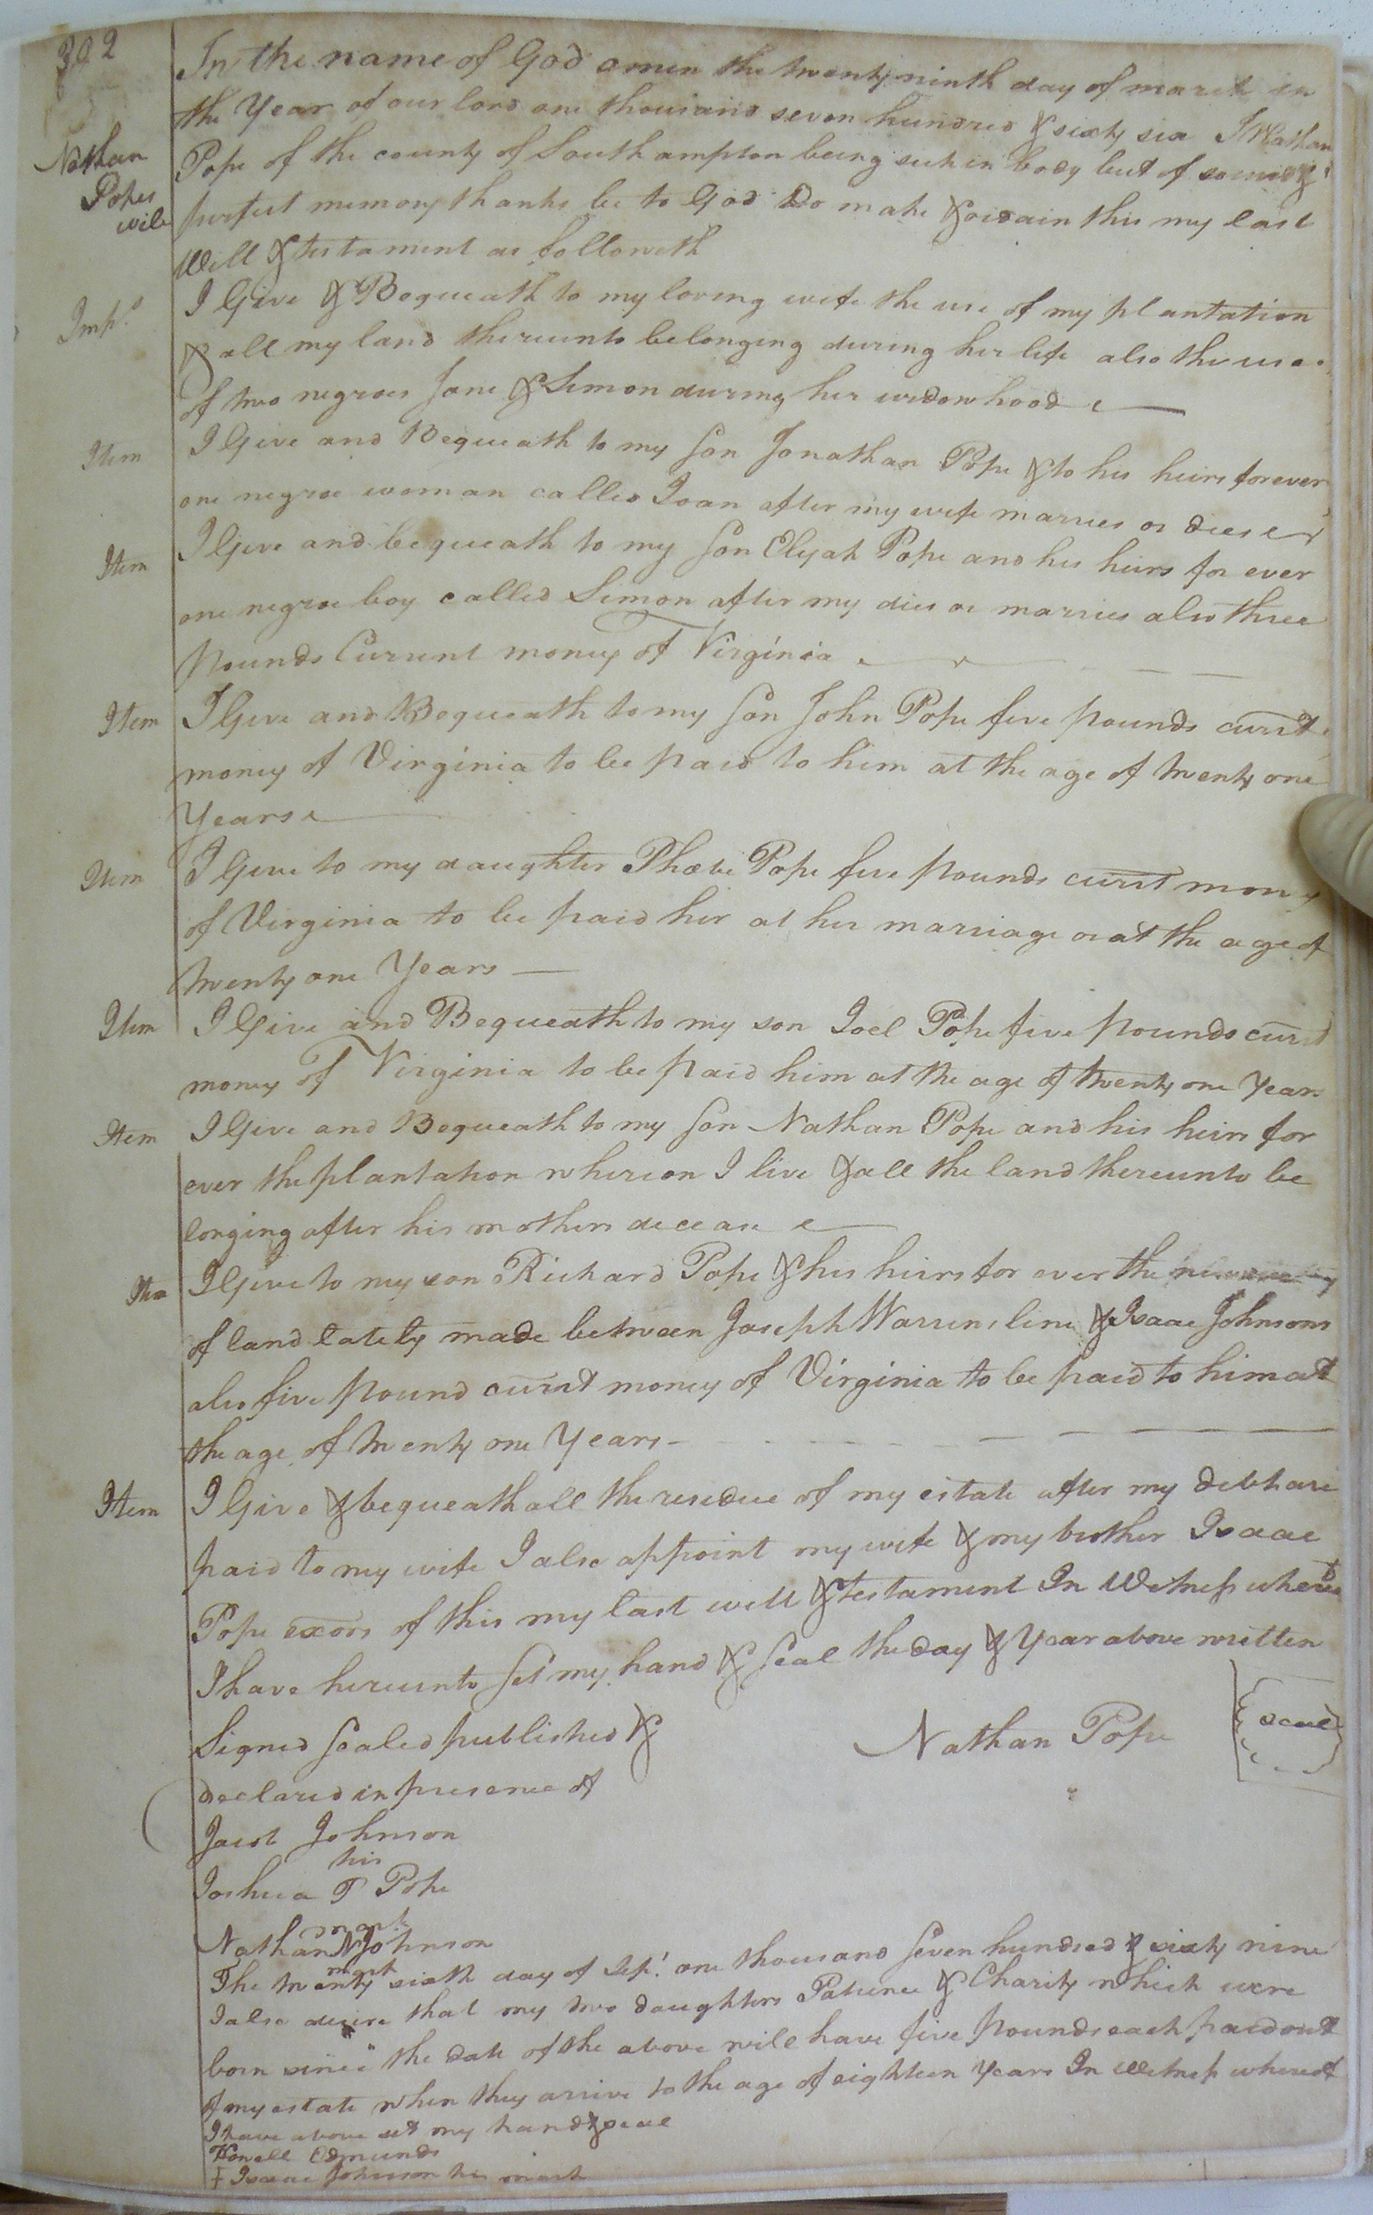 302
Nathan
Popes
will
In the name of God amen the twenty ninth day of march in
the Year of our lord one thousand seven hundred & sixty six I Nathan
Pope of the county of Southampton being sick in body but of sound &
perfect memory thanks be to God Do make & ordain this my last
Will & testament as followeth
Imp.s I Give & Bequeath to my loving wife the use of my plantation
& all my land thereunto belonging during her life also the use
of two negroes Jone & Simon during her widowhood
Item I Give and Bequeath to my Son Jonathan Pope & to his heirs forever
one negroe woman called Joan after my wife marries or dies
Item I Give and bequeath to my Son Elijah Pope and his heirs for ever
one negroe boy called Simon after my dies or marries also three
pounds Current money of Virginia
Item I Give and Bequeath to my Son John Pope five pounds currt
money of Virginia to be paid to him at the age of twenty one
Years
Item I Give to my daughter Phœbe Pope five pounds currt money
of Virginia to be paid her at her marriage or at the age of
twenty one Years
Item I Give and Bequeath to my son Joel Pope five pounds currt
money of Virginia to be paid him at the age of twenty one Years
Item I Give and Bequeath to my Son Nathan Pope and his heirs for
ever the plantation whereon I live & all the land thereunto be
longing after his mothers decease
Ite I Give to my son Richard Pope & his heirs for ever the
of land lately made between Joseph Warrens line & Isaac Johnsons
also five pound currt money of Virginia to be paid to him at
the age of twenty one Years
Item I Give & bequeath all the residue of my estate after my debts are
paid to my wife I also appoint my wife & my brother Isaac
Pope exors of this my last will & testament In Witness whereof
I have hereunto Set my hand & Seal the day & Year above written
Signed Sealed published & Nathan Pope seal
declared in presence of
Jacob Johnson
his
Joshua P Pope
mark
Nathan N Johnson
mark
The twenty sixth day of Sept. one thousand Seven hundred & sixty nine
I also desire that my two daughters Patience & Charity which were
born since the date of the above will have five pounds each paid out
of my estate when they arrive to the age of eighteen Years In Witness whereof
I have above set my hand & seal
Howell Edmunds
+ Isaac Johnson his mark